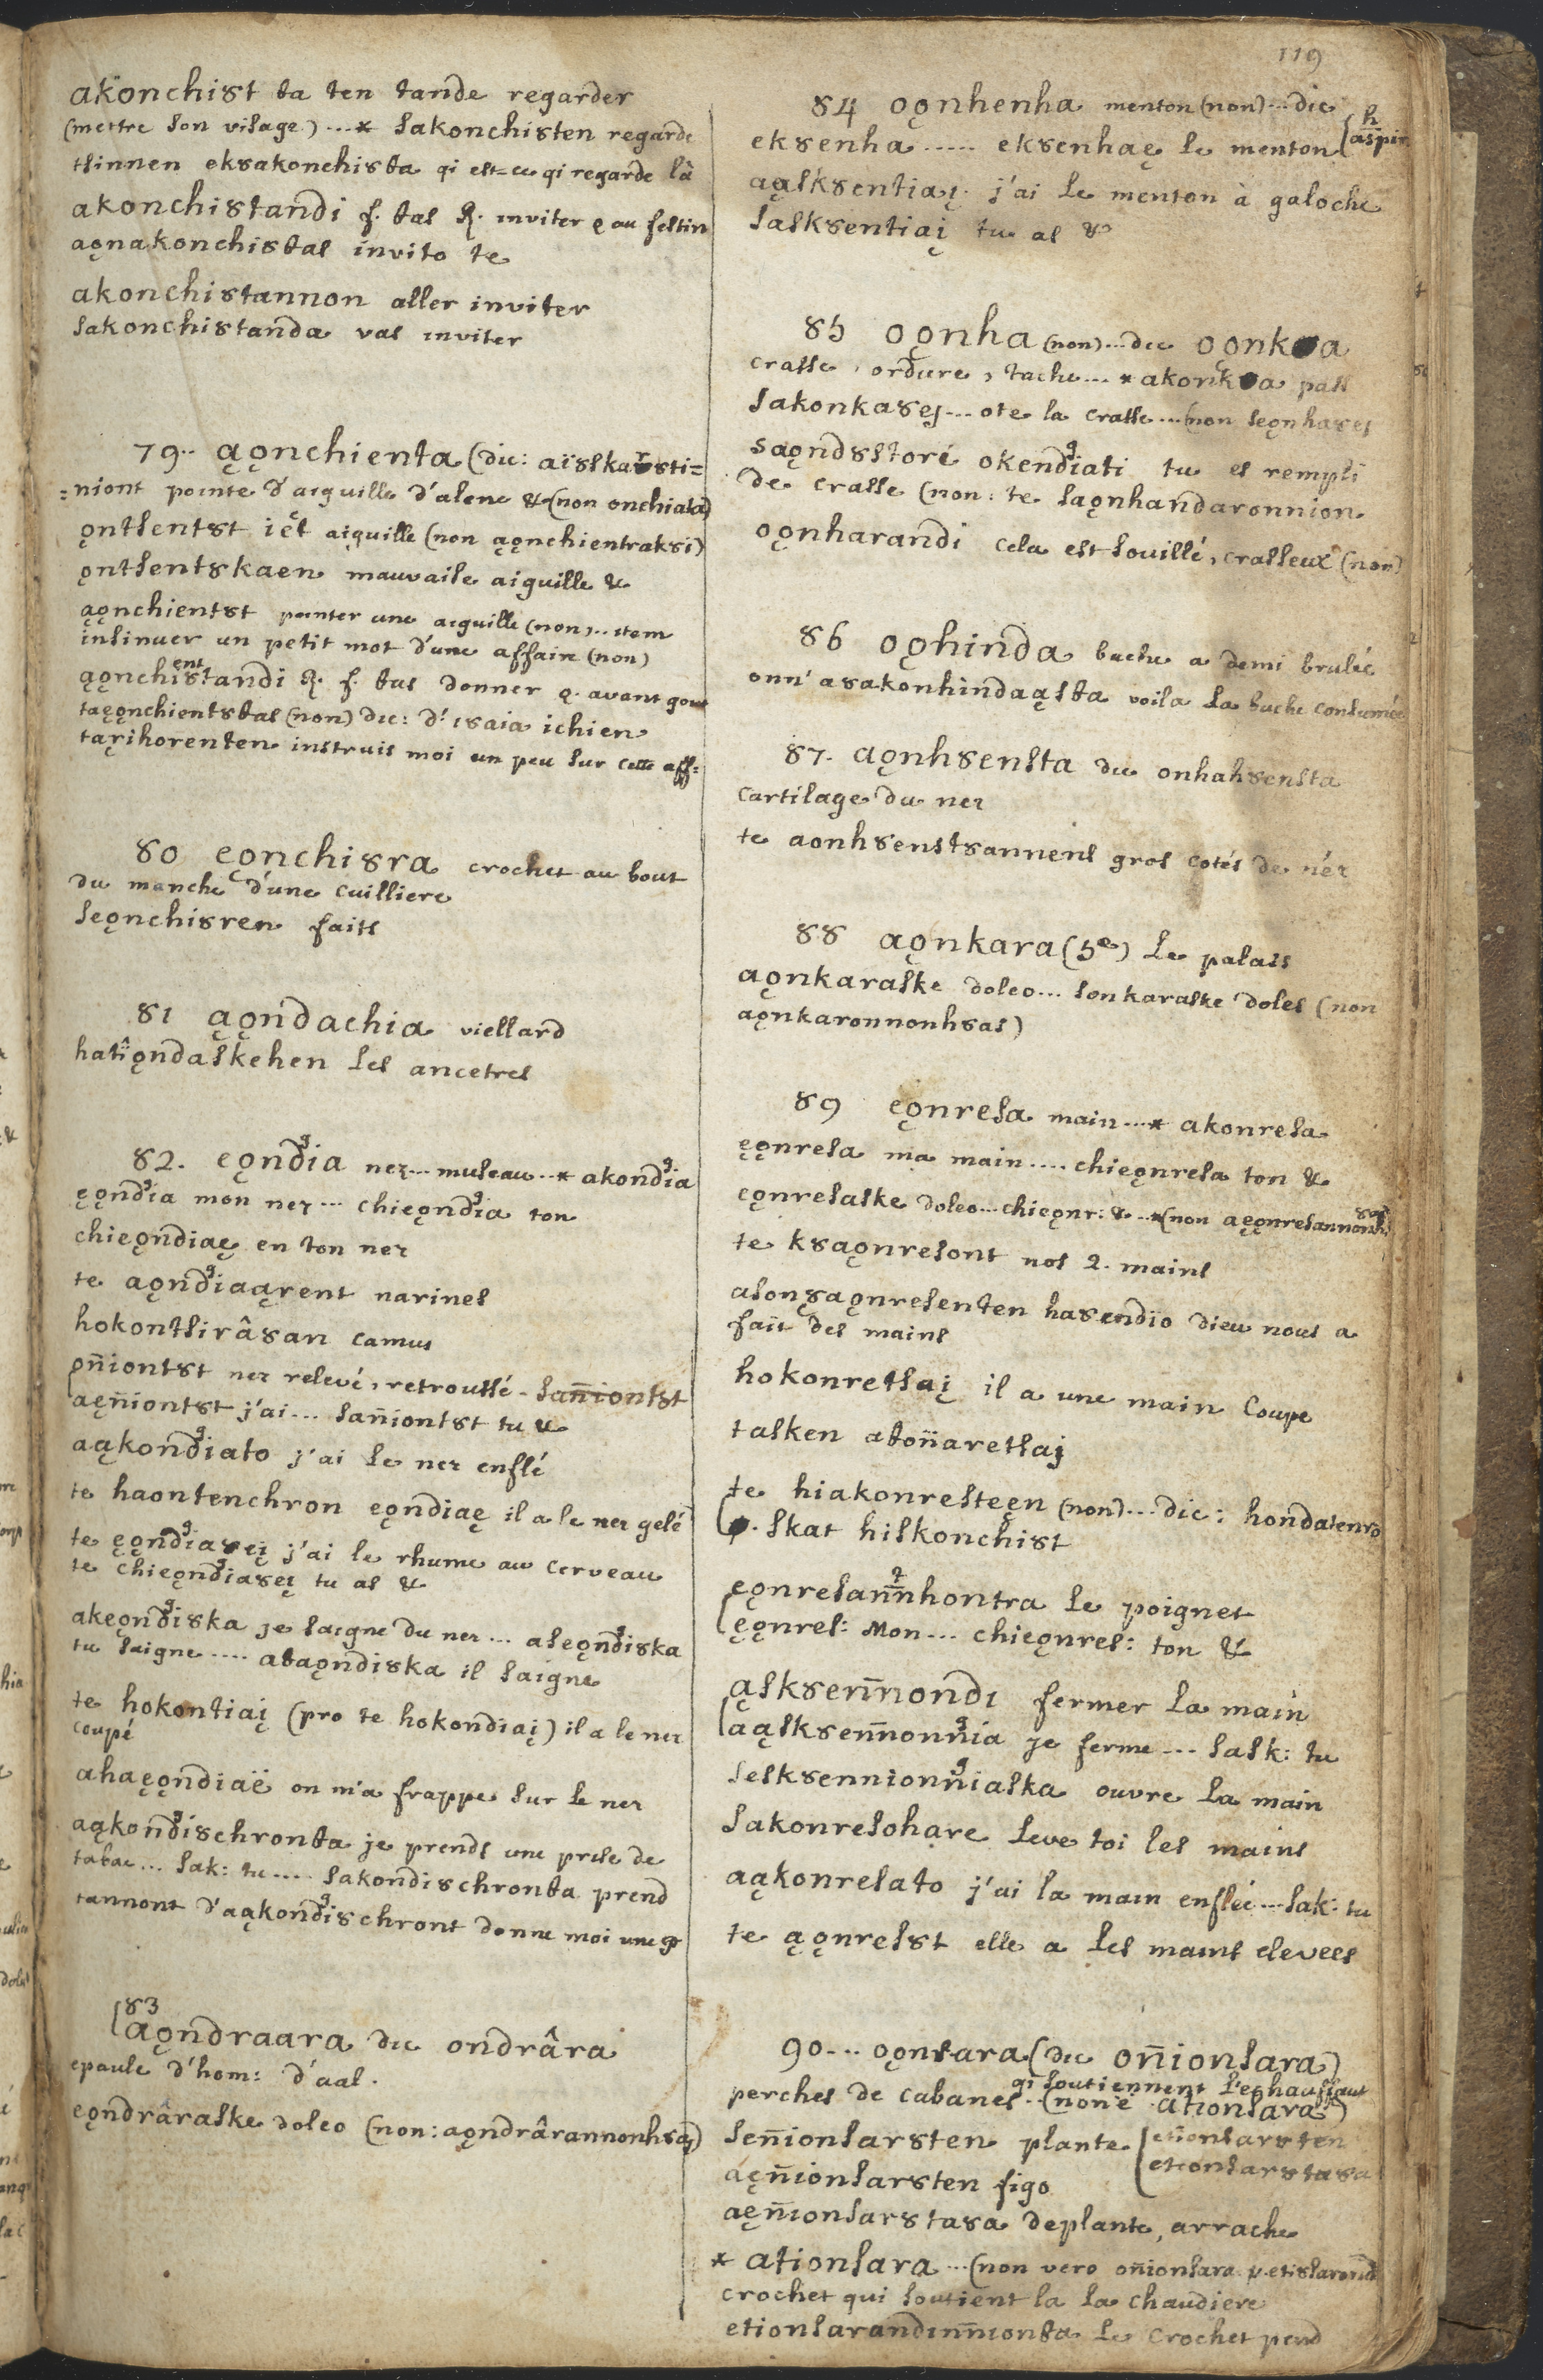 119
akonchist ta ten tande regarder
(mettre son visage) ...* sakonchisten regarde
tsinnen eksakonchista qi est=ce qi regarde là
akonchistandi f. tas R. inviter q au festin
aǫnakonchistas invito te
akonchistannon aller inviter
sakonchistanda vas inviter
79.. ąǫnchienta (dic:
=niont pointe d'aiguille d'alene & (non onchiata)
ǫntsentȣt iet aiguille (non ąǫnchientraksi)
ǫntsentȣkaen mauvaise aiguille &
ąǫnchientȣt pointer une aiguille (non)... item
insinuer un petit mot d'une affaire (non)
ąǫnchientȣtandi R. f. tas donner q. avant gout
taęǫnchientȣtas (non) dic: d' isaia ichien
taꞯrihorenten instruis moi un peu sur cette aff:
80 eǫnchiȣra crochet au bout
du manche d'une cuilliere
seǫnchiȣren fais
81 ąǫndachia viellard
hatiǫndaskehen les ancetres
82. eǫndia nez... museau...* akondia
ęǫndia mon nez... chieǫndia ton
chieǫndiaę en ton nez
te aǫndiaąrent narines
hokontsirâȣan camus
oñiontȣt nez relevé, retroussé - sañiontȣt
aęñiontȣt j'ai... sañiontȣt tu &
aąkondiato j'ai le nez enflé
te haontenchron eǫndiaę il a le nez gelé
te ęǫndiaȣeį j'ai le rhume au cerveau
te chieǫndiaȣeį tu as &
akeǫndiȣka je saigne du nez... aseǫndiȣka
tu saigne .... ataǫndiȣka il saigne
te hokontiaį (pro te hokondiaį) il a le nez
coupé
ahaęǫndiaë on m'a frappe sur le nez
aąkondiȣchronta je prends une prise de
tabac... sak: tu.... sakondiȣchronta prend
tannont d'aąkondiȣchront donne moi une
83
aǫndraara dic ondrâra
epaule d'hom: d'aal.
eǫndrâraske doleo (non: aǫndrârannonhȣaį)
84 oǫnhenha menton (non)... dic
ekȣenha ...... ekȣenhaę le menton (h aspir
aąskȣentiaį. j'ai le menton à galoche
saskȣentiaį tu as &
85 oǫnha (non)... dic oǫnkȣa
crasse, ordure, tache... * akonkȣa pass
sakonkaȣeį... ote la crasse... (non seǫnhaȣeį
saǫndȣstoré okendiati tu es rempli
de crasse (non: te saǫnhandaronnion
oǫnharandi cela est souillé, crasseux (non)
86 oǫhinda buche a demi brulée
onn' aȣakonhindaąsta voila la buche consumée
87. aǫnhȣensta dic onhahȣensta
cartilage du nez
te aonhȣenstȣannens gros cotés de néz
88 aǫnkara (5e) le palais
aǫnkaraske doleo... sonkaraske doles (non
aǫnkaronnonhȣas)
89 eǫnresa main...* akonresa
ęǫnresa ma main.... chieǫnresa ton &
eǫnresaske doleo... chieǫnr: &...*(non aęǫnresannonhȣaį
te kȣaǫnresont nos 2. mains
asonꞯȣaǫnresenten haȣendio dieu nous a
fait des mains
hokonretsaį il a une main coupe
tasken atoñaretsaį
te hiakonresteęn (non)... dic: hondatenro
skat hiskonchist
eǫnresannhontra le poignet
ęǫnres: mon... chieǫnres: ton &
ąskȣennondi fermer la main
aąskȣennonnia je ferme... sask: tu
seskȣennionniaska ouvre la main
sakonresohare leve toi les mains
aąkonresato j'ai la main enflée... sak: tu
te ąǫnresȣt elle a les mains elevees
90... oǫnsara (dic oñionsara)
perches de cabanes qi soutiennent l'echauffaut
(non ê ationsara)
señionsarȣten plante (etionsarȣten
aęñionsarȣten figo (etionsarȣtaȣa
aęñionsarȣtaȣa deplante, arrache
* ationsara... (non vero oñionsara
crochet qui soutient la la chaudiere
etionsarandinnionta le crochet pend